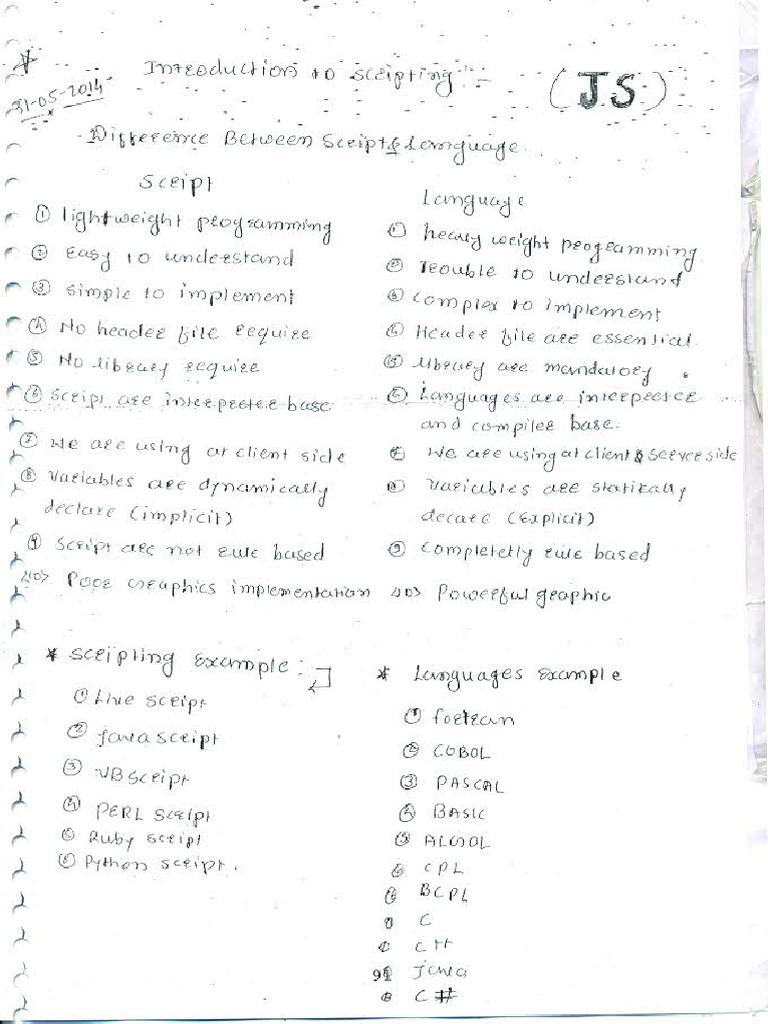 * Introduction to scripting :- (JS)
31-05-2014
Difference Between Script & Language
Script
① lightweight programming
② Easy to understand
③ simple to implement
④ No header file require
⑤ No library require
⑥ Script are interpreter base
⑦ We are using at client side
⑧ Variables are dynamically
declare (implicit)
⑨ Script are not rule based
10> Poor Graphics implementation
Language
① heavy weight programming
② Trouble to understand
③ Complex to implement
④ Header file are essential.
⑤ library are mandatory
⑥ Languages are interpreter
and compiler base.
⑦ We are using at client & Server side
⑧ Variables are statikally
decare (Explicit)
⑨ Completetly rule based
10> Powerful geaphic
* Scripting Example :
① Live script
② java script
③ VB Script
④ PERL Script
⑤ Ruby script
⑥ Python script.
* Languages Example
① Fortran
② COBOL
③ PASCAL
④ BASIC
⑤ ALGOL
⑥ CPL
⑦ BCPL
⑧ C
C++
91 java
C#